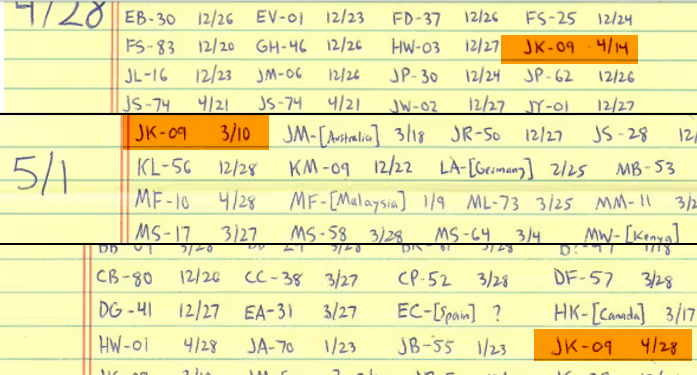 4/28
EB-30 12/26 EV-01 12/23 FD-37 12/26 FS-25 12/24
FS-83 12/20 GH-46 12/26 HW-03 12/27 JK-09 4/14
JL-16 12/23 JM-06 12/26 JP-30 12/24 JP-62 12/26
JS-74 4/21 JS-74 4/21 JW-02 12/27 JY-01 12/27
JK-09 3/10 JM-[Australia] 3/18 JR-50 12/27 JS-28 12/
5/1
KL-56 12/28 KM-09 12/22 LA-[Germany] 2/25 MB-53
MF-10 4/28 MF-[Malaysia] 1/9 ML-73 3/25 MM-11 3/2
MS-17 3/27 MS-58 3/28 MS-64 3/4 MW-[Kenya]
CB-80 12/26 CC-38 3/27 CP-52 3/28 DF-57 3/28
DG-41 12/27 EA-31 3/27 EC-[Spain] ? HK-[Canada] 3/17
HW-01 4/28 JA-70 1/23 JB-55 1/23 JK-09 4/28